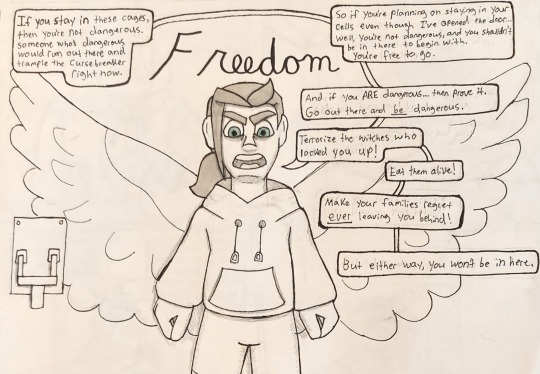 If you stay in these cages,
then you're not dangerous.
someone who's dangerous
would run out there and
trample the Cursebreaker
right now.
Freedom
So if you're planning on staying in your
cells even though I've opened the door...
Well, you're not dangerous, and you shouldn't
be in there to begin with.
You're free to go.
And if you ARE dangerous... then prove it.
Go out there and be dangerous.
Terrorize the witches who
locked you up!
Eat them alive!
Make your families regret
ever leaving you behind!
But either way, you won't be in here.